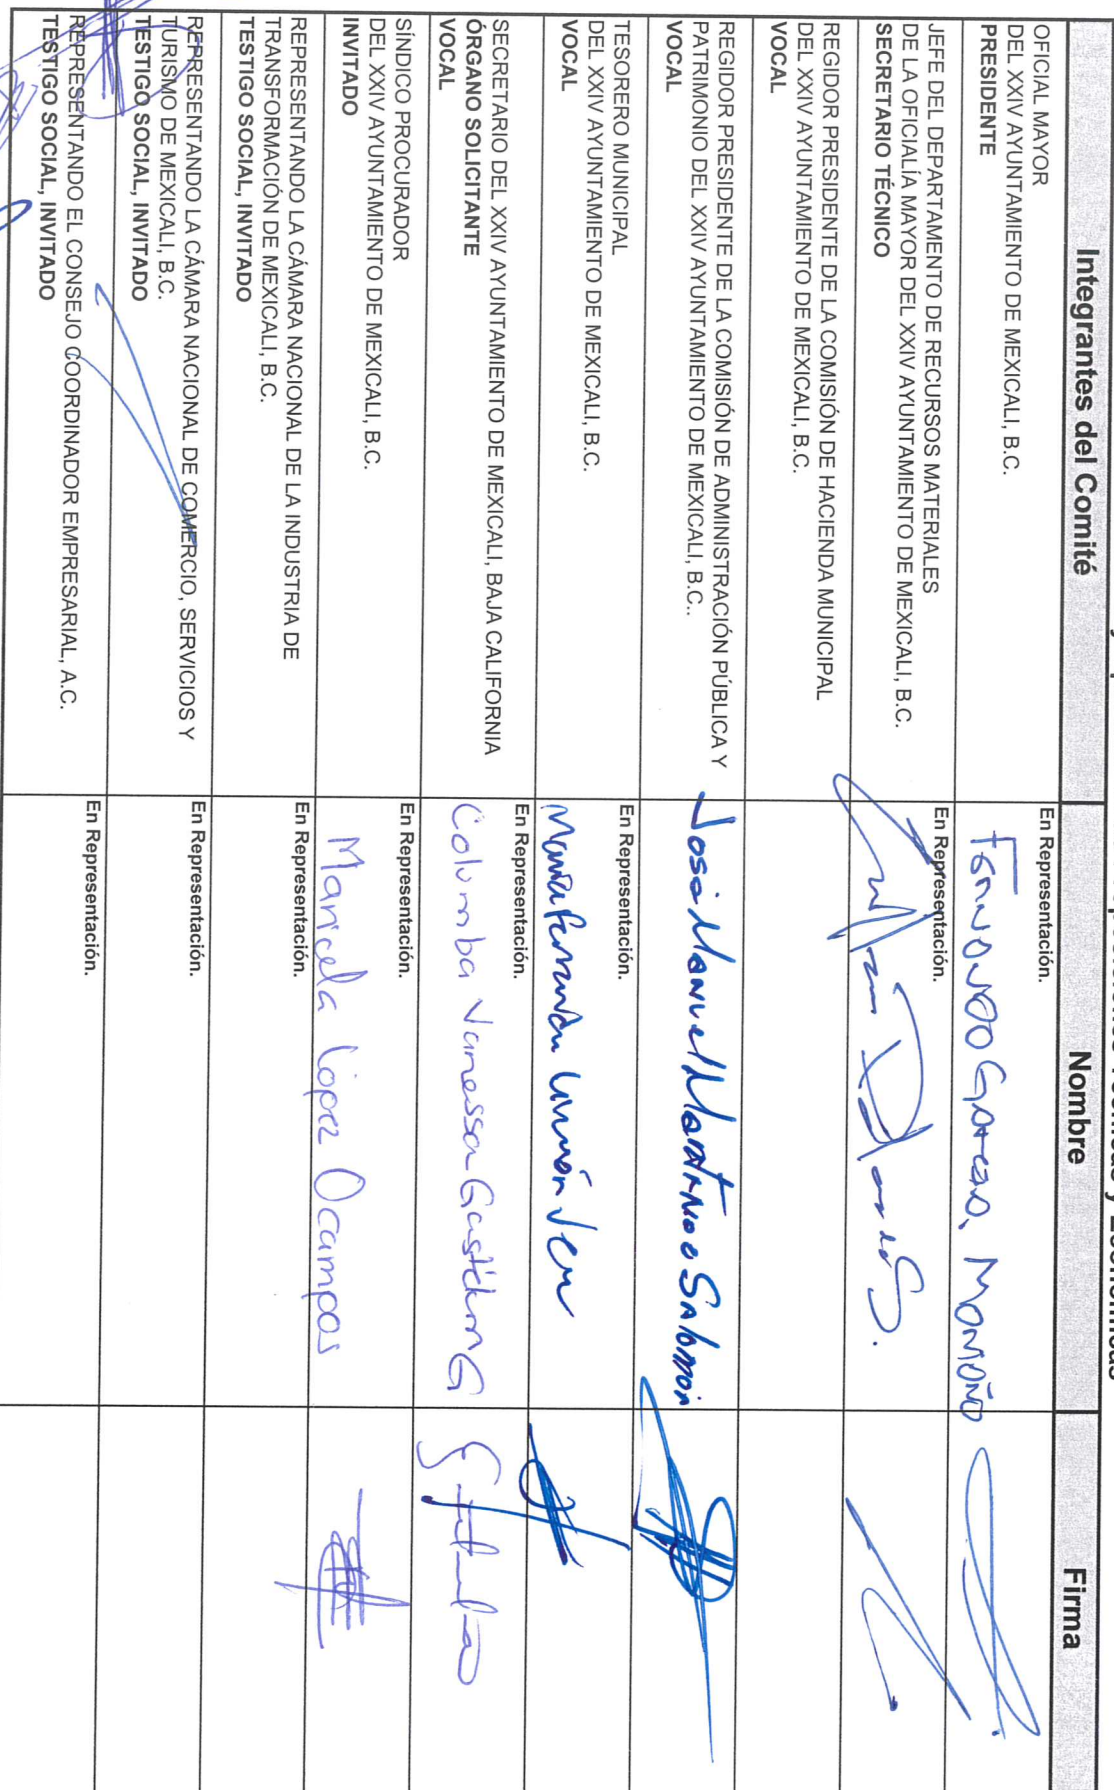 Integrantes del Comité
Nombre
Firma
OFICIAL MAYOR
DEL XXIV AYUNTAMIENTO DE MEXICALI, B.C.
PRESIDENTE
En Representación.
JEFE DEL DEPARTAMENTO DE RECURSOS MATERIALES
DE LA OFICIALÍA MAYOR DEL XXIV AYUNTAMIENTO DE MEXICALI, B.C.
SECRETARIO TÉCNICO
En Representación.
REGIDOR PRESIDENTE DE LA COMISIÓN DE HACIENDA MUNICIPAL
DEL XXIV AYUNTAMIENTO DE MEXICALI, B.C.
VOCAL
REGIDOR PRESIDENTE DE LA COMISIÓN DE ADMINISTRACIÓN PÚBLICA Y
PATRIMONIO DEL XXIV AYUNTAMIENTO DE MEXICALI, B.C..
VOCAL
José Manuel Martínez Salomón
TESORERO MUNICIPAL
DEL XXIV AYUNTAMIENTO DE MEXICALI, B.C.
VOCAL
En Representación.
María Fernanda
SECRETARIO DEL XXIV AYUNTAMIENTO DE MEXICALI, BAJA CALIFORNIA
ÓRGANO SOLICITANTE
VOCAL
En Representación.
Columba Vanessa Gastélum G
SÍNDICO PROCURADOR
DEL XXIV AYUNTAMIENTO DE MEXICALI, B.C.
INVITADO
En Representación.
Maricela López Ocampos
REPRESENTANDO LA CÁMARA NACIONAL DE LA INDUSTRIA DE
TRANSFORMACIÓN DE MEXICALI, B.C.
TESTIGO SOCIAL, INVITADO
En Representación.
REPRESENTANDO LA CÁMARA NACIONAL DE COMERCIO, SERVICIOS Y
TURISMO DE MEXICALI, B.C.
TESTIGO SOCIAL, INVITADO
En Representación.
REPRESENTANDO EL CONSEJO COORDINADOR EMPRESARIAL, A.C.
TESTIGO SOCIAL, INVITADO
En Representación.